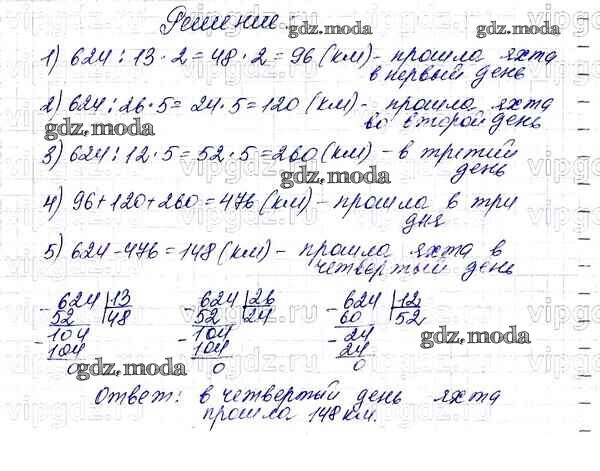 Решение.
1) 624 : 13 · 2 = 48 · 2 = 96 (км) – прошла яхта
в первый день
2) 624 : 26 · 5 = 24 · 5 = 120 (км) – прошла яхта
во второй день
3) 624 : 12 · 5 = 52 · 5 = 260 (км) – в третий
день
4) 96 + 120 + 260 = 476 (км) – прошла в три
дня
5) 624 – 476 = 148 (км) – прошла яхта в
четвертый день
624 | 13   624 | 26   624 | 12
52 | 48   52 | 24   60 | 52
104   104   24
104   104   24
0   0   0
Ответ: в четвертый день яхта
прошла 148 км.
gdz.moda
gdz.moda
gdz.moda
gdz.moda
gdz.moda
gdz.moda
gdz.moda
vipgdz.ru